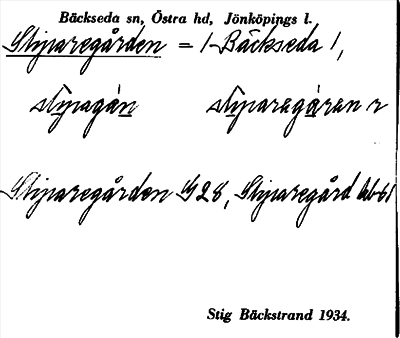 Bäckseda sn, Östra hd, Jönköpings l.
Stiparegården = 1 Bäckseda 1,
stipagån stiparegåran r
Stiparegården G28, Stiparegård
Stig Bäckstrand 1934.